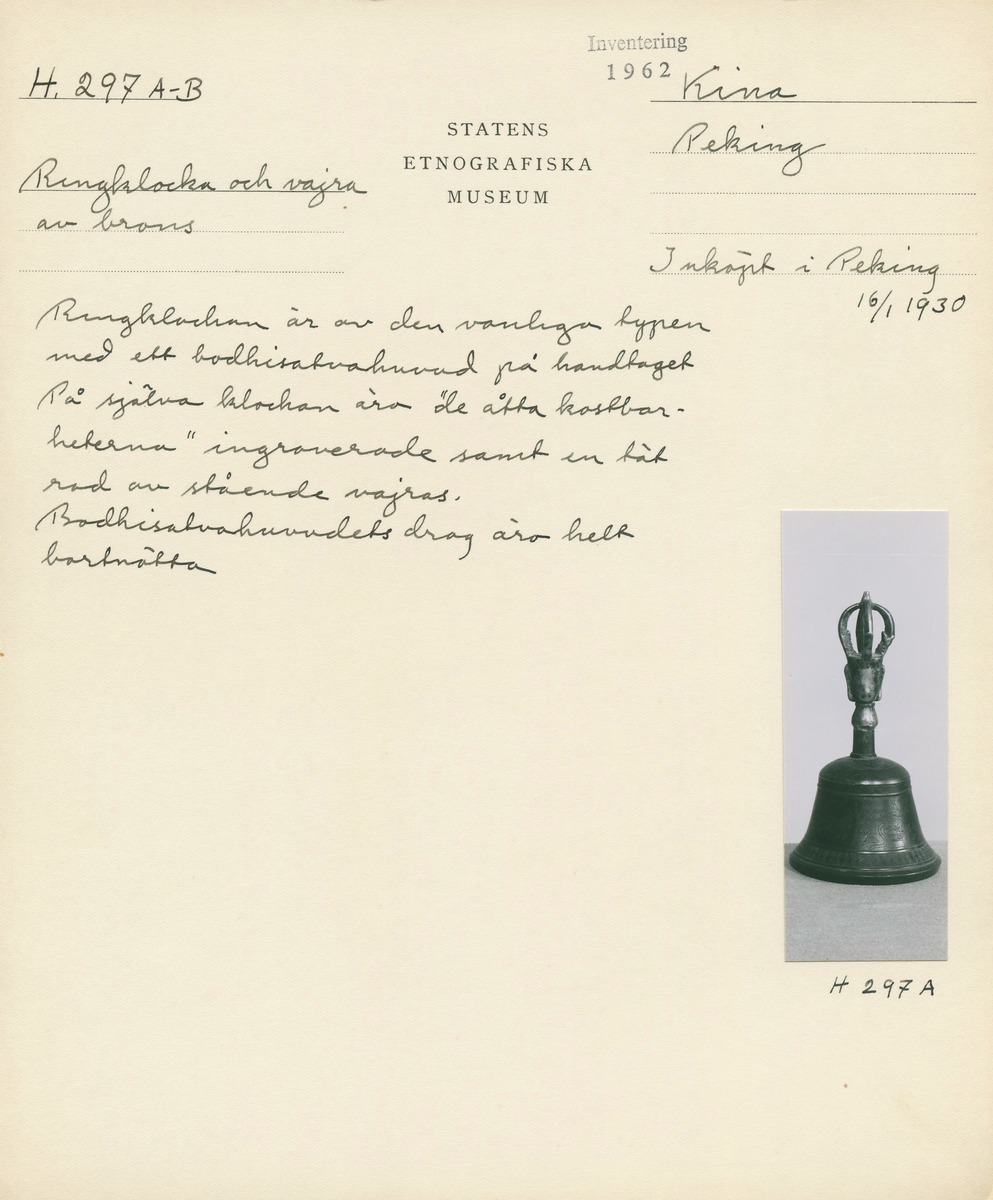 Inventering
1962
H. 297 A-B
Kina
STATENS
ETNOGRAFISKA
MUSEUM
Peking
Ringklocka och vajra
av brons
Inköpt i Peking
16/1 1930
Ringklockan är av den vanliga typen
med ett bodhisatvahuvud på handtaget
På själva klockan äro "de åtta kostbar-
heterna" ingraverade samt en tät
rad av stående vajras.
Bodhisatvahuvudets drag äro helt
bortnötta
H 297 A